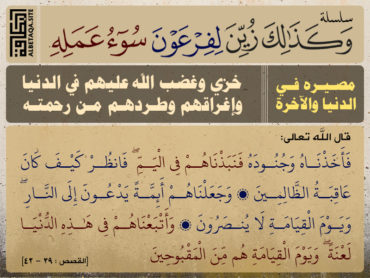 سلسلة
وَكَذَٰلِكَ زُيِّنَ لِفِرْعَوْنَ سُوٓءُ عَمَلِهِ
البطاقة
ALBETAQA.SITE
مصيره في
الدنيا والآخرة
خزي وغضب الله عليهم في الدنيا
وإغراقهم وطردهم من رحمته
قال الله تعالى:
فَأَخَذْنَاهُ وَجُنُودَهُ فَنَبَذْنَاهُمْ فِي الْيَمِّ ۖ فَانظُرْ كَيْفَ كَانَ
عَاقِبَةُ الظَّالِمِينَ ۞ وَجَعَلْنَاهُمْ أَئِمَّةً يَدْعُونَ إِلَى النَّارِ ۖ
وَيَوْمَ الْقِيَامَةِ لَا يُنصَرُونَ ۞ وَأَتْبَعْنَاهُمْ فِي هَٰذِهِ الدُّنْيَا
لَعْنَةً ۖ وَيَوْمَ الْقِيَامَةِ هُم مِّنَ الْمَقْبُوحِينَ
[القصص : ٣٩ - ٤٢]